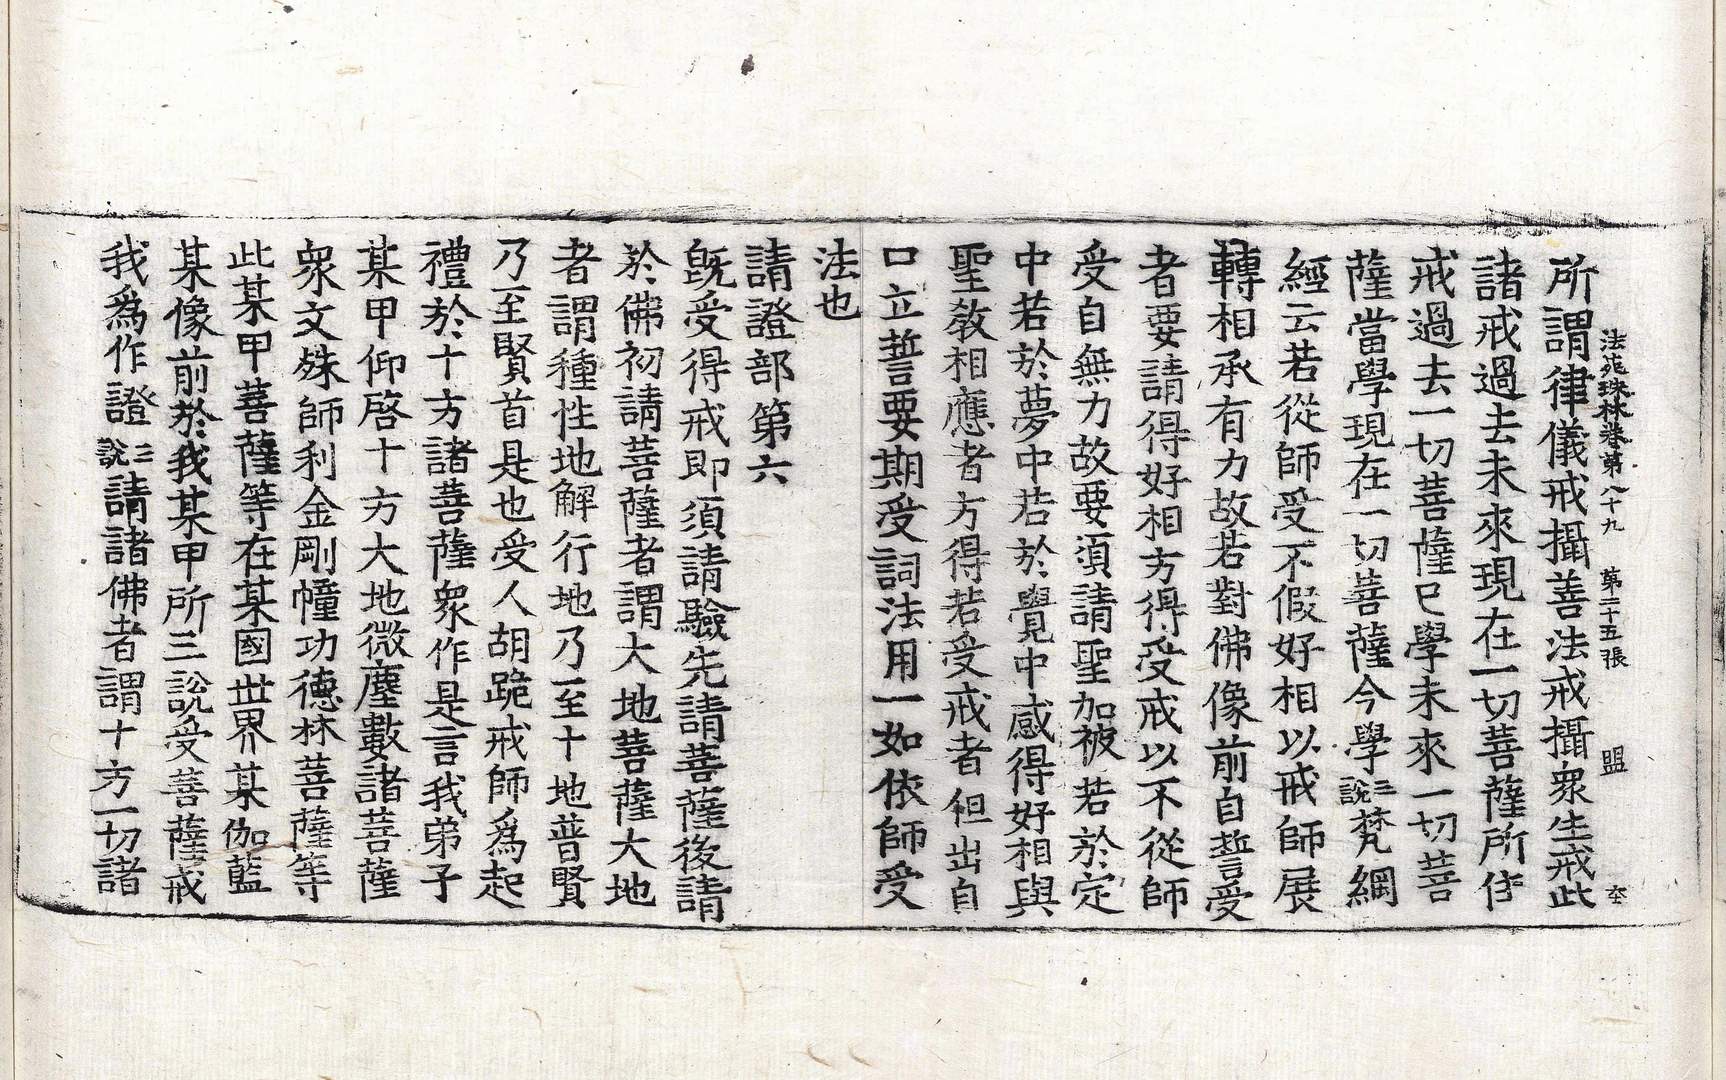 法苑珠林卷第八十九 第二十五張 盟
所謂律儀戒攝善法戒攝衆生戒此
諸戒過去未來現在一切菩薩所住
戒過去一切菩薩已學未來一切菩
薩當學現在一切菩薩今學三說梵網
經云若從師受不假好相以戒師展
轉相承有力故若對佛像前自誓受
者要請得好相方得受戒以不從師
受自無力故要須請聖加被若於定
中若於夢中若於覺中感得好相與
聖教相應者方得若受戒者但出自
口立誓要期受詞法用一如依師受
法也
請證部第六
旣受得戒即須請驗先請菩薩後請
於佛初請菩薩者謂大地菩薩大地
者謂種性地解行地乃至十地普賢
乃至賢首是也受人胡跪戒師爲起
禮於十方諸菩薩衆作是言我弟子
某甲仰啓十方大地微塵數諸菩薩
衆文殊師利金剛幢功德林菩薩等
此某甲菩薩等在某國世界某伽藍
某像前於我某甲所三說受菩薩戒
我爲作證三說請諸佛者謂十方一切諸